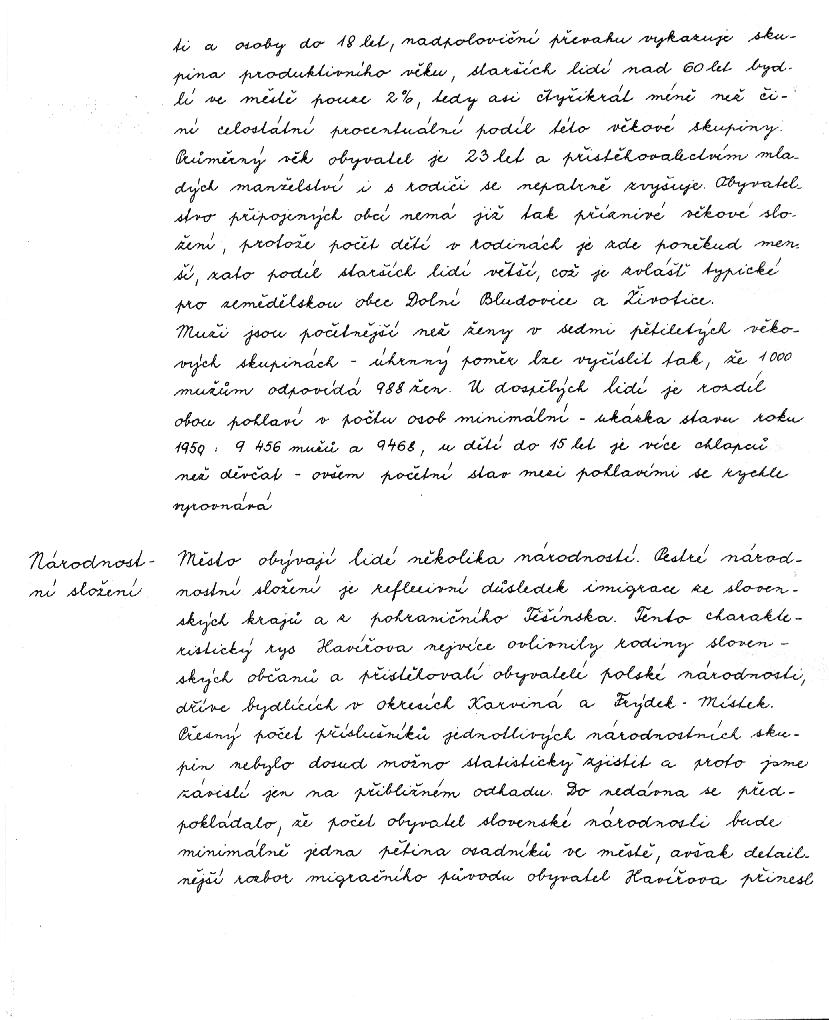 ti a osoby do 18 let, nadpoloviční převahu vykazuje sku-
pina produktivního věku, starších lidí nad 60 let byd-
lí ve městě pouze 2%, tedy asi čtyřikrát méně než či-
ní celostátní procentuální podíl této věkové skupiny.
Průměrný věk obyvatel je 23 let a přistěhovalectvím mla-
dých manželství i s rodiči se nepatrně zvyšuje. Obyvatel-
stvo připojených obcí nemá již tak příznivé věkové slo-
žení, protože počet dětí v rodinách je zde poněkud men-
ší, zato podíl starších lidí větší, což je zvlášť typické
pro zemědělskou obec Dolní Bludovice a Životice.
Muži jsou početnější než ženy v sedmi pětiletých věko-
vých skupinách - úhrnný poměr lze vyčíslit tak, že 1000
mužům odpovídá 988 žen. U dospělých lidí je rozdíl
obou pohlaví v počtu osob minimální - ukázka stavu roku
1959: 9 456 mužů a 9468, u dětí do 15 let je více chlapců
než děvčat - ovšem početní stav mezi pohlavími se rychle
vyrovnává
Národnost-
ní složení
Město obývají lidé několika národností. Pestré národ-
nostní složení je reflexivní důsledek imigrace ze sloven-
ských krajů a z pohraničního Těšínska. Tento charakte-
ristický rys Havířova nejvíce ovlivnily rodiny sloven-
ských občanů a přistěhovalí obyvatelé polské národnosti,
dříve bydlících v okresích Karviná a Frýdek - Místek.
Přesný počet příslušníků jednotlivých národnostních sku-
pin nebylo dosud možno statisticky zjistit a proto jsme
závislí jen na přibližném odhadu. Do nedávna se před-
pokládalo, že počet obyvatel slovenské národnosti bude
minimálně jedna pětina osadníků ve městě, avšak detail-
nější rozbor migračního původu obyvatel Havířova přinesl